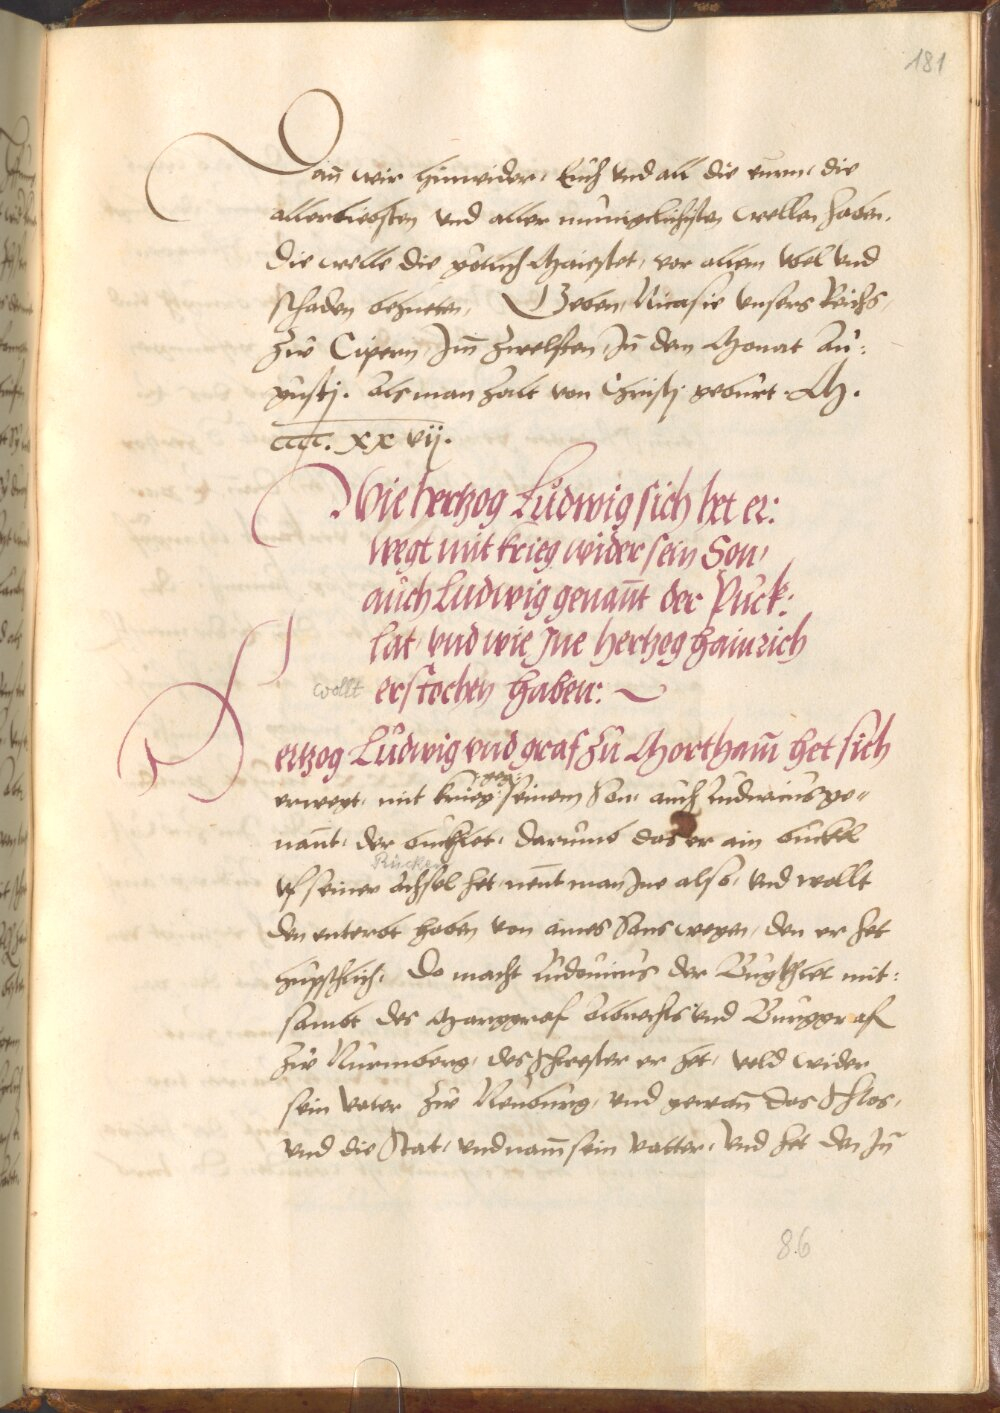 181
Dan̄ wir hinwider, Euch vnd all die eurn, die
allerliebsten vnd aller muniglichisten wellen haben,
die welle die götlich Maiestet, vor allem vbel vnd
schaden behueten, Geben, Nicasie vnsers Reichs,
zw Cipern, Im̄ zwelften, In̄ dem Monat Au:
gusti. als man zalt von Christi geburt .M.
cccc. xx vij.
Wie hertzog Ludwig sich het er:
wegt mit krieg wider sein Son,
auch Ludwig genan̄t der Puck:
lat, vnd wie Ine hertzog Hainrich
wollt erstochen haben:
Hertzog Ludwig vnd graf zu Mortham̄ het sich
erwegt, mit krieg: gegen: seinem Son, auch Ludwicus ge=
nan̄t, der bucklet, darumb das er ain buckel
Rücken
vf seiner achsel het, nen̄t man Ine also, vnd wollt
den enterbt haben von aines Sans wegen, den er het
hupschlich, Do macht Ludouicus der Bugklet mit:
sambt des Marggraf Albrechts vnd Burggraf
zw Nurmberg, des Schwester er het, veld wider
sein vater zw Neuburg, vnd gewan̄ das Schlos,
vnd die Stat, vnd nam̄ sein vatter, vnd het den In̄
86